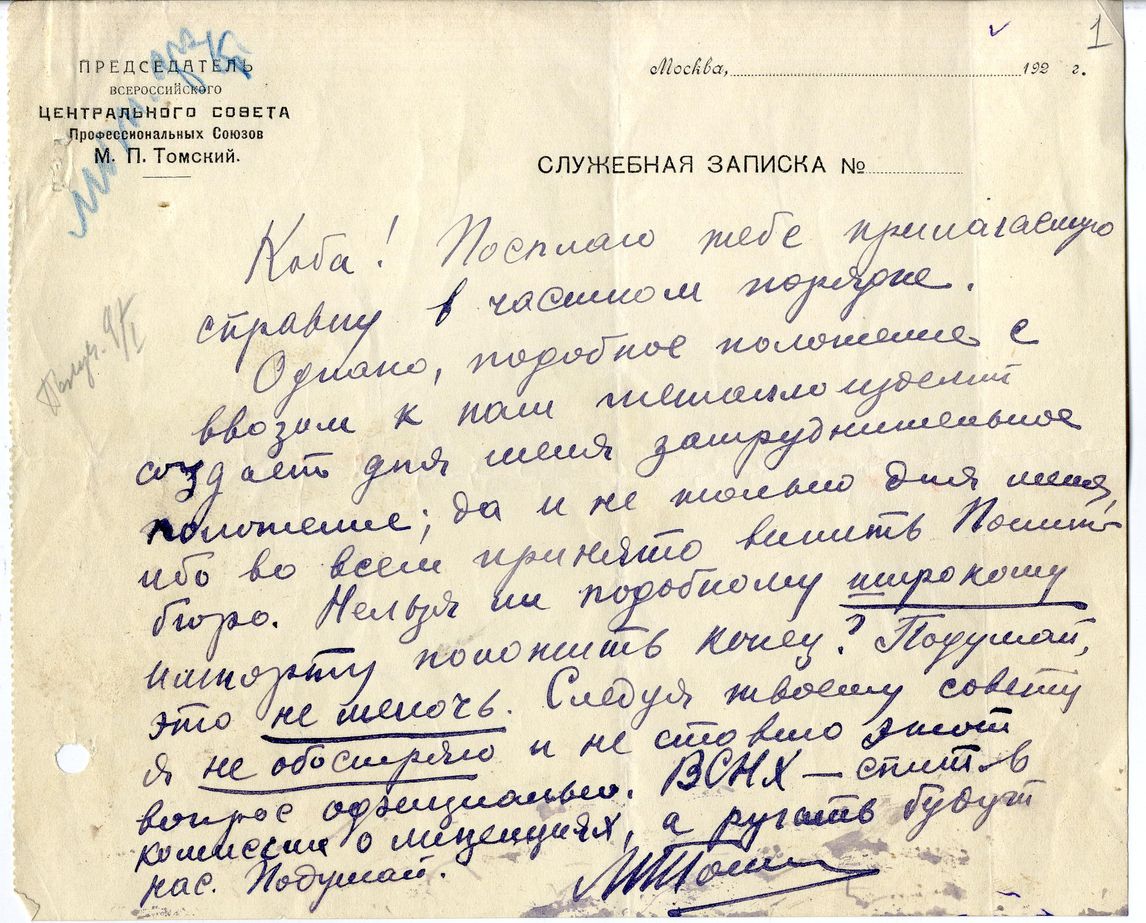 1
ПРЕДСЕДАТЕЛЬ
ВСЕРОССИЙСКОГО
ЦЕНТРАЛЬНОГО СОВЕТА
Профессиональных Союзов
М. П. Томский.
Москва, 192 г.
СЛУЖЕБНАЯ ЗАПИСКА №
Коба! Посылаю тебе прилагаемую
справку в частном порядке.
Однако, подобное положение с
ввозом к нам металлоизделий
создает для меня затруднительное
положение; да и не только для меня,
ибо во всем принято винить Полит-
бюро. Нельзя ли подобному широкому
импорту положить конец? Подумай,
это не мелочь. Следуя твоему совету
я не обостряю и не ставлю этот
вопрос официально. ВСНХ — спит в
комиссии о лицензиях, а ругать будут
нас. Подумай.
МТомский
Получ. 9/I